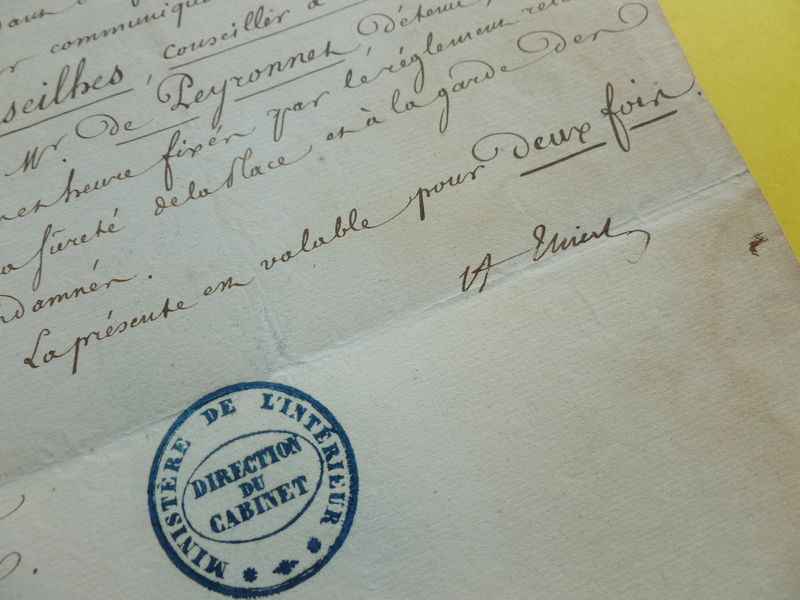 communiqu
seilhes, conseiller à
Mr. de Peyronnet, détenu,
et heure fixés par le réglement
la sûreté de la Place et à la garde des
ndamnés.
La présente est valable pour deux fois.
A Thiers
MINISTÈRE DE L'INTÉRIEUR
DIRECTION
DU
CABINET